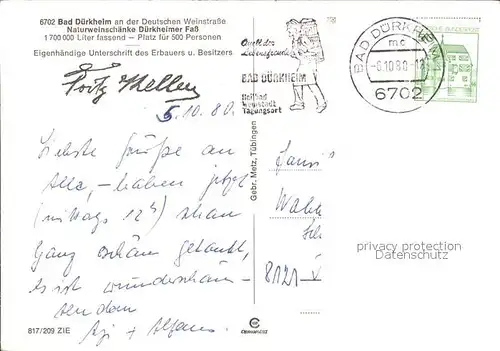 6702 Bad Dürkheim an der Deutschen Weinstraße
Naturweinschänke Dürkheimer Faß
1 700 000 Liter fassend – Platz für 500 Personen
Eigenhändige Unterschrift des Erbauers u. Besitzers
Fritz Keller
5.10.80.
Liebste Grüße an
Alle, – haben jetzt
(mittags 12h) schon
ganz schön getankt,
es ist wunderschön –
817/209 ZIE
Gebr. Metz, Tübingen
Quell der
Lebensfreude
BAD DÜRKHEIM
Heilbad
Weinstadt
Tagungsort
BAD DÜRKHEIM
mc
-6.10.80.-1
6702
BUNDESPOST
Fami
8121
privacy protection
Datenschutz